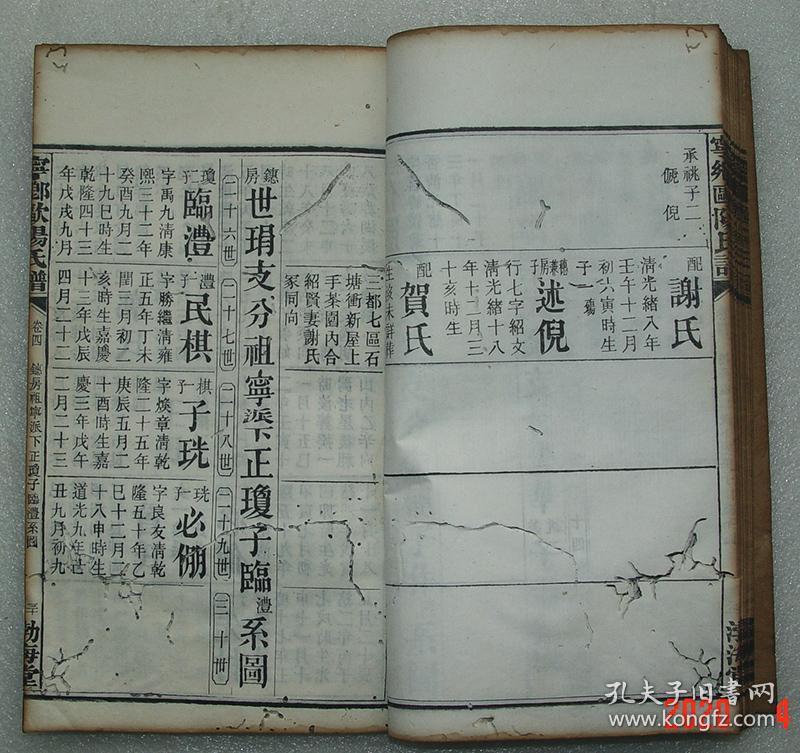 寧鄉歐陽氏譜
承祧子二
儷 倪
配謝氏
清光緒八年
壬午十二月
初六寅時生
子一 瑒
房子述倪
行七字紹文
清光緒十八
年十二月三
十亥時生
配賀氏
三都七區石
塘衝新屋上
手菜園內合
紹賢妻謝氏
冢同向
鏓房世琄支分祖寧派下正瓊子臨澧系圖
二十六世
二十七世
二十八世
二十九世
三十世
瓊子臨澧
字禹九清康
熙三十二年
癸酉九月二
十九巳時生
乾隆四十三
年戊戌九月
澧子民棋
字勝繼清雍
正五年丁未
閏三月初二
亥時生嘉慶
十三年戊辰
四月二十二
棋子子珖
字煥章清乾
隆二十五年
庚辰五月二
十酉時生嘉
慶三年戊午
二月二十三
珖子必倗
字良友清乾
隆五十年乙
巳十二月二
十八申時生
道光九年己
丑九月初九
寧鄉歐陽氏譜
卷四
鏓房祖寧派下正瓊子臨澧系圖
勃海堂
孔夫子旧书网
www.kongfz.com